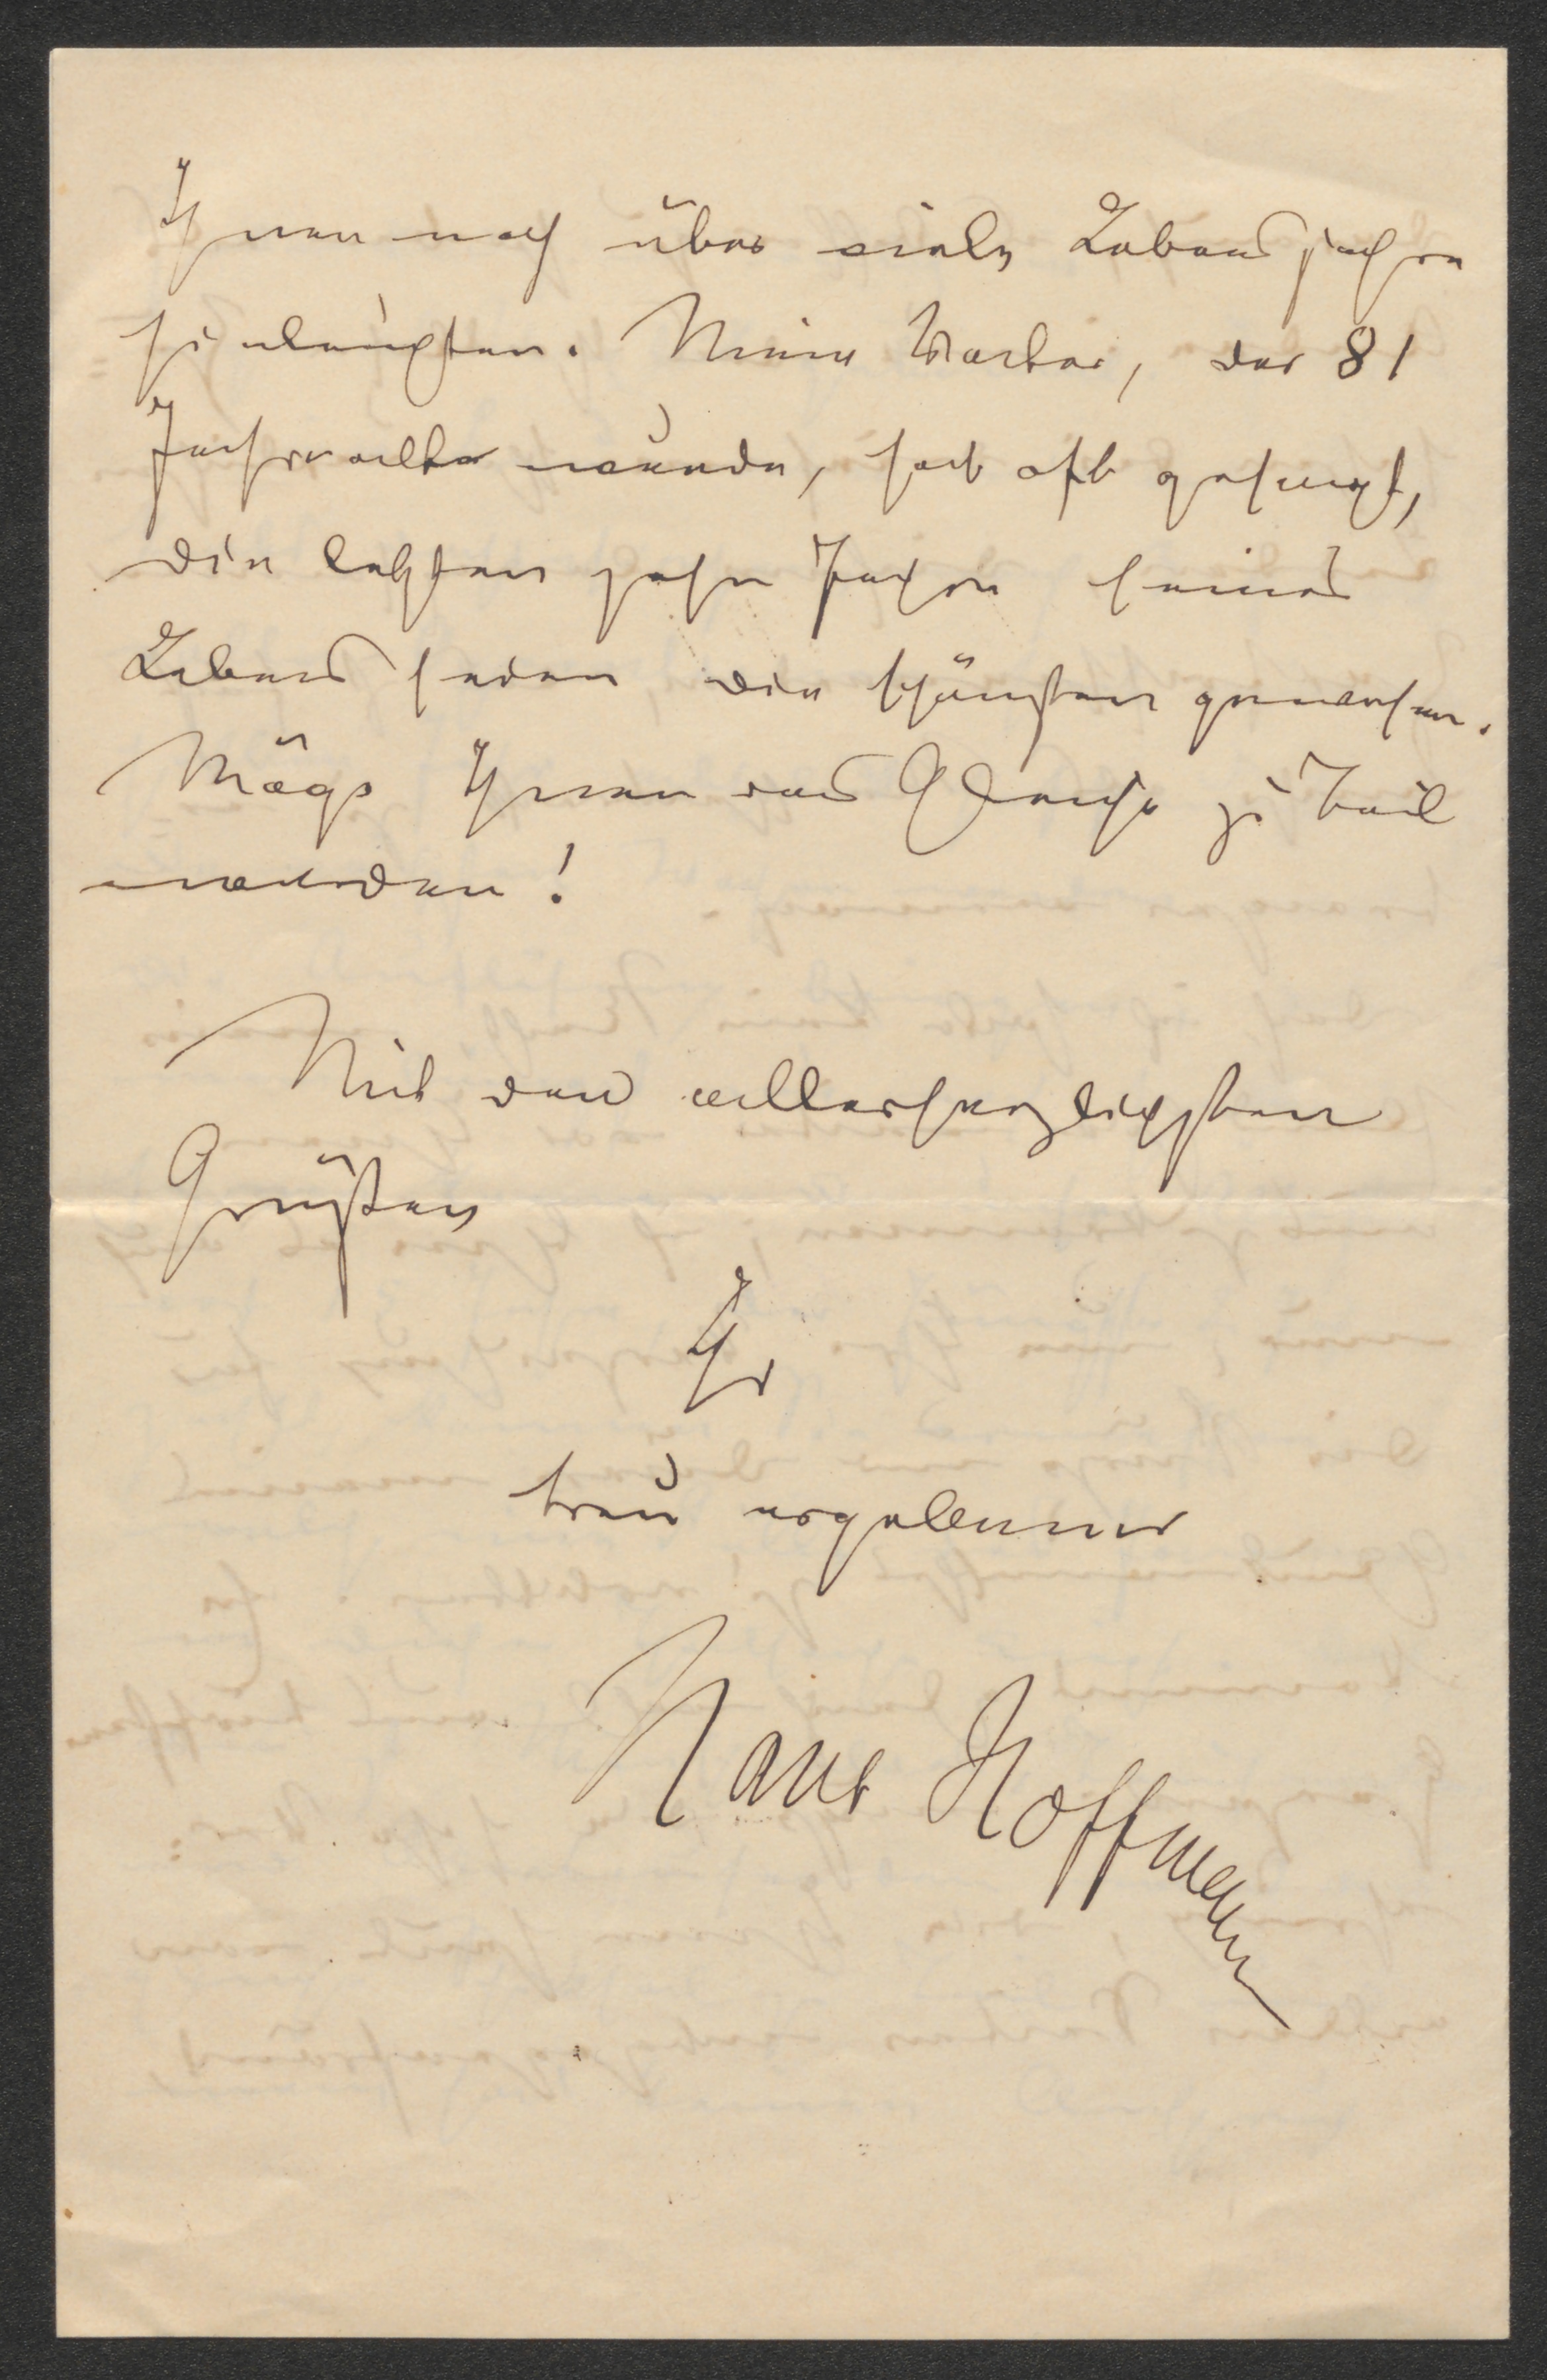 Ihnen noch über viele Lebensjahre
hinleuchten. Mein Vater, der 81
Jahre alt wurde, hat oft gesagt,
die letzten zehn Jahre seines
Lebens seien die schönsten gewesen.
Möge Ihnen das Gleiche zu Teil
werden!
Mit den allerherzlichsten
Grüßen
Ihr
treu ergebener
Hans Hoffmann